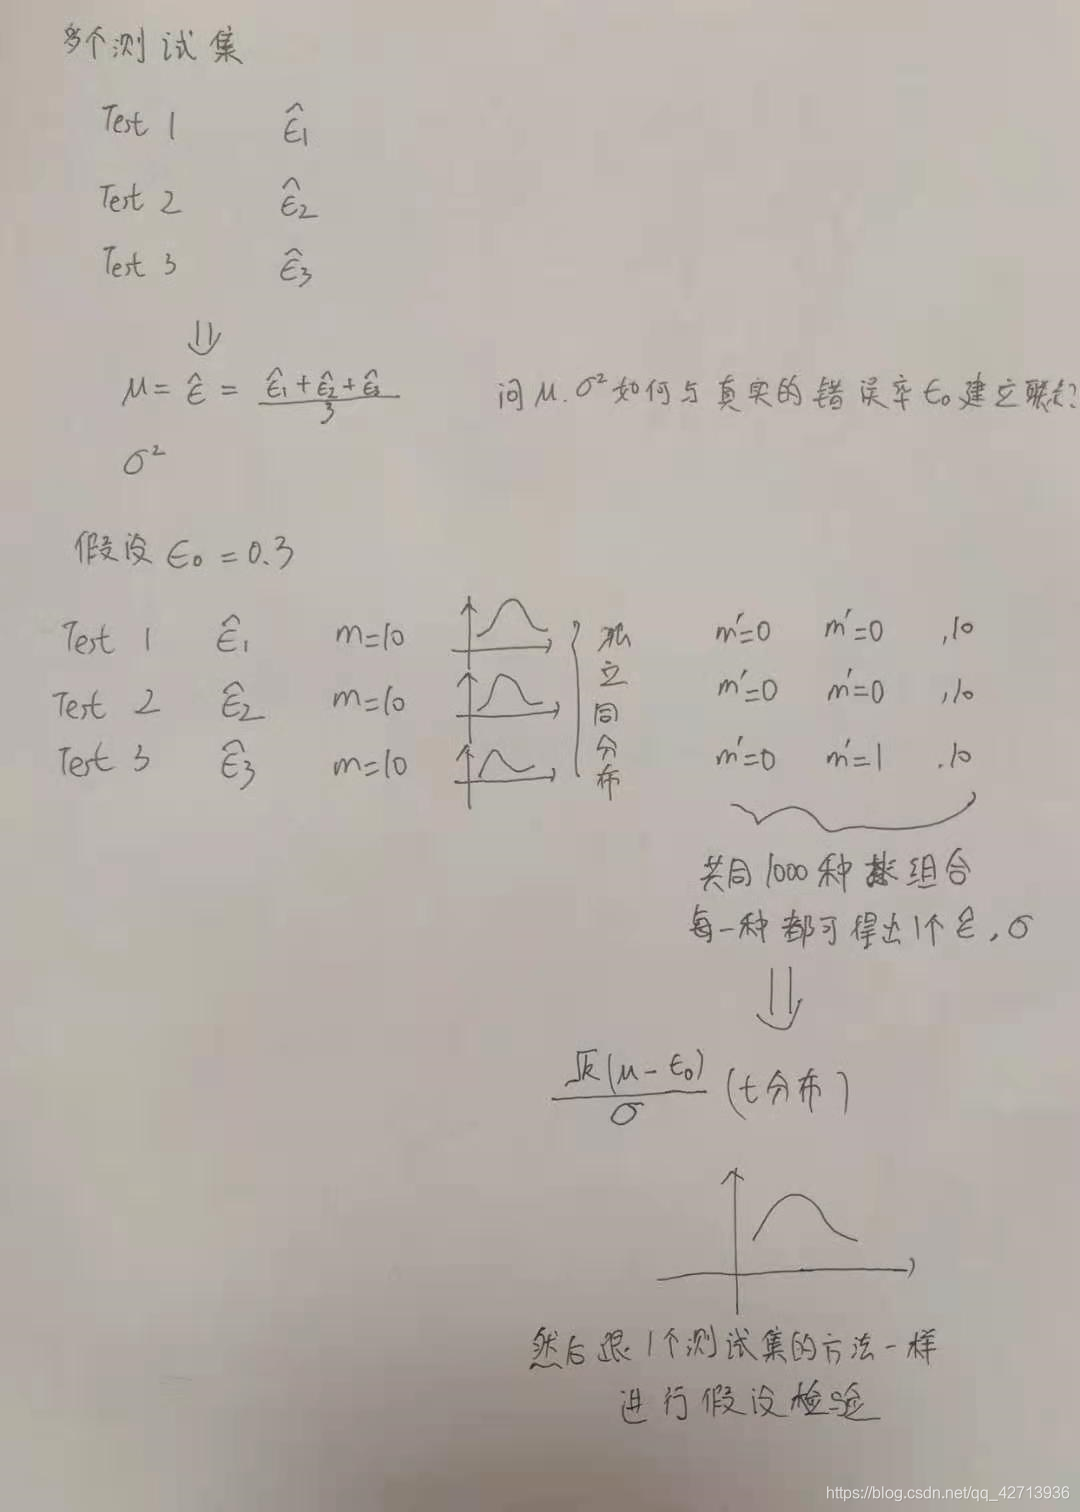 多个测试集
Test 1 ε̂1
Test 2 ε̂2
Test 3 ε̂3
⇓
μ = ε̂ = (ε̂1+ε̂2+ε̂3)/3 问 μ. σ² 如何与真实的错误率 ε0 建立联系?
σ²
假设 ε0 = 0.3
Test 1 ε̂1 m=10 m'=0 m'=0 ,10
Test 2 ε̂2 m=10 m'=0 m'=0 ,10
Test 3 ε̂3 m=10 m'=0 m'=1 .10
独立同分布
共同1000种 组合
每一种都可得出1个 ε̂, σ
⇓
√k(μ-ε0)/σ (t分布)
然后跟1个测试集的方法一样
进行假设检验
https://blog.csdn.net/qq_42713936